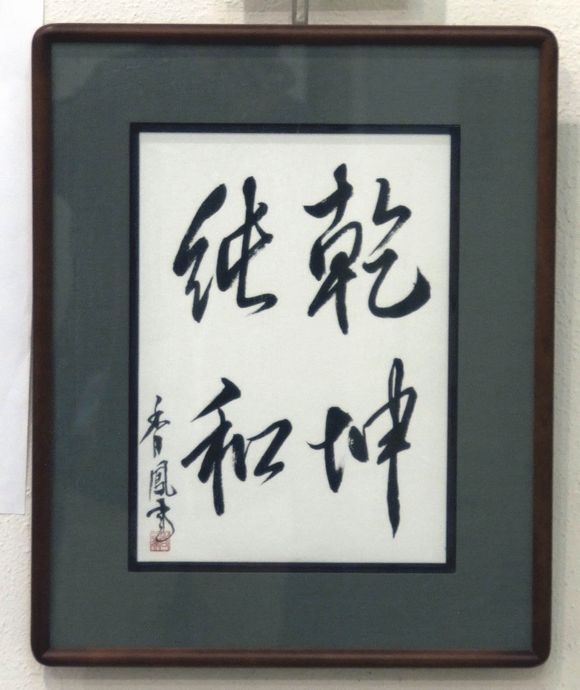 乾坤
純和
香鳳書